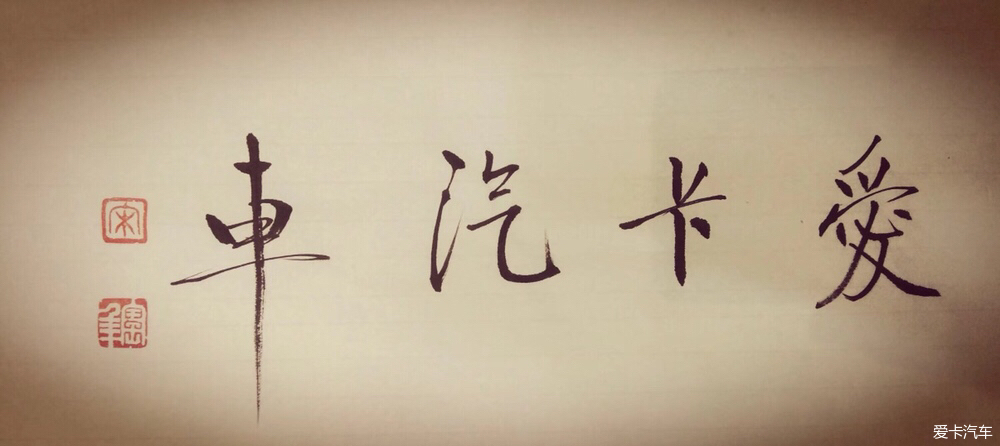 愛卡汽車
宋
爱卡汽车